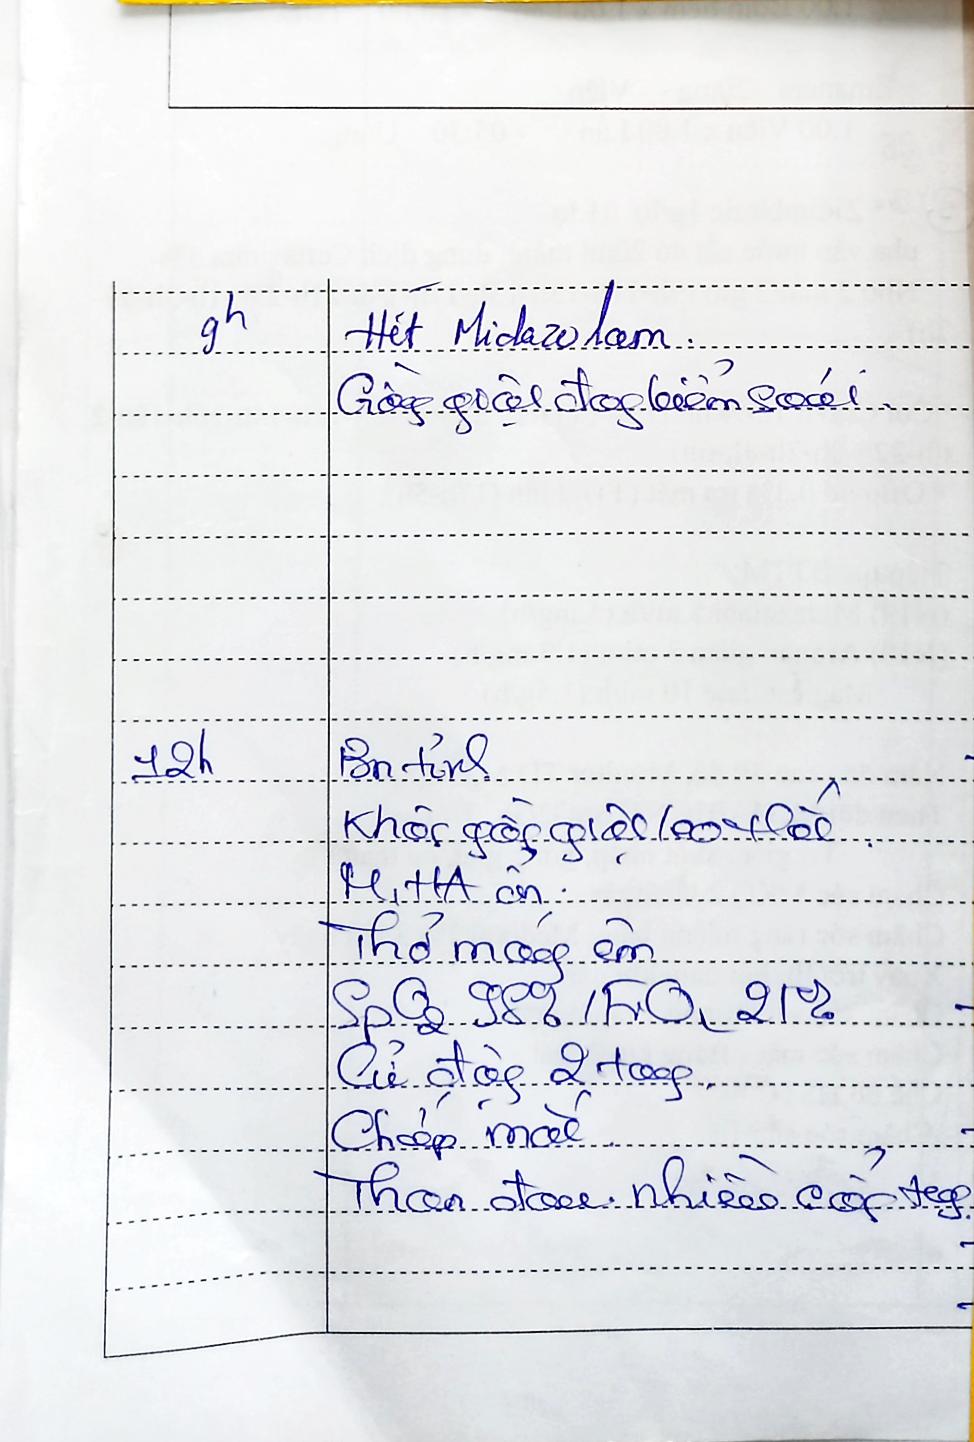 9h
Hết Midazolam.
Gồng giật đang kiểm soát.
12h
Bn tỉnh
Không gồng giật lao thốc.
M, HA ổn.
Thở máy êm
SpO2 98% / FiO2 21%
Cử động 2 tay.
Chớp mắt.
Than đau nhiều